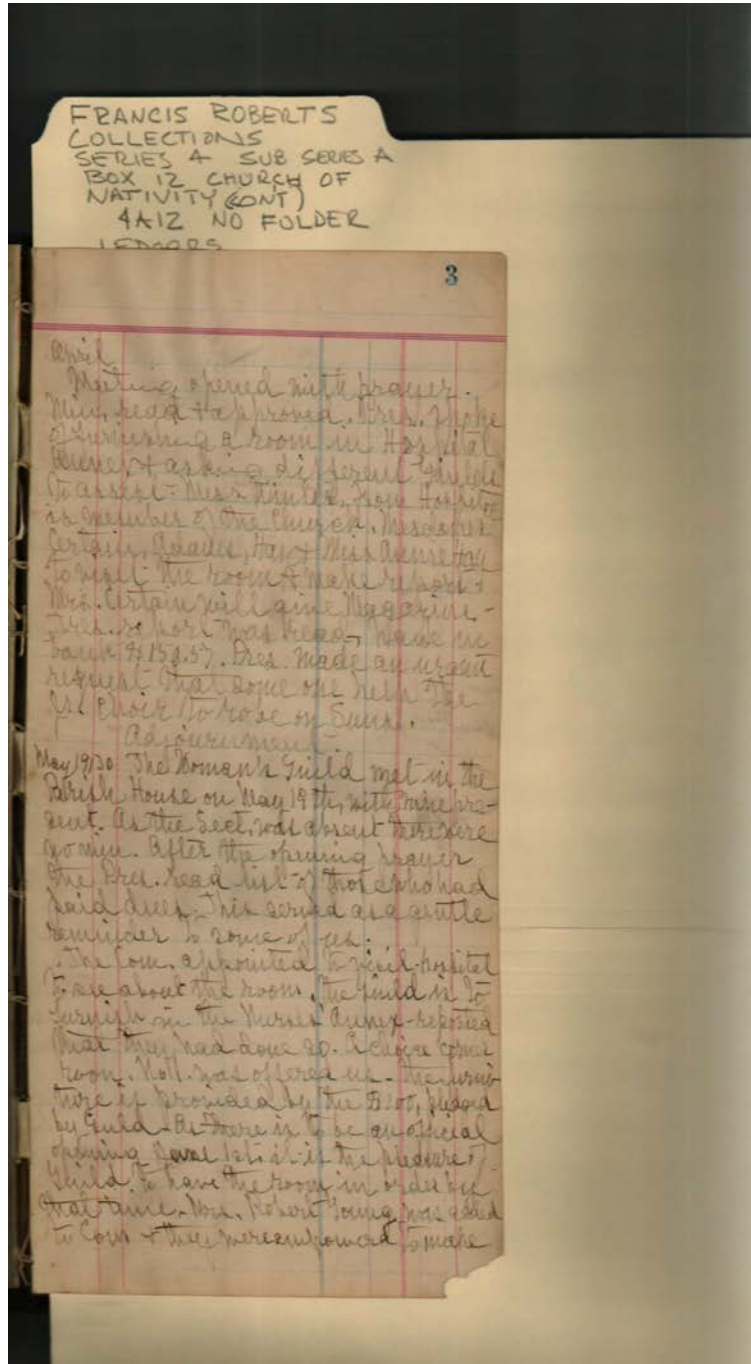 FRANCIS ROBERTS
COLLECTIONS
SERIES 4 SUB SERIES A
BOX 12 CHURCH OF
NATIVITY (CONT)
4A12 NO FOLDER
LEDGERS
3
April
Meeting opened with prayer.
Min. read + approved. Pres. spoke
of furnishing a room in Hospital
Annex + asking different Guilds
to assist - Miss from Hospital
is member of the Church. Mesdames
Certain, Hay + Miss Annie Hay
to visit the room + make report +
Mrs. Certain will give Magazine -
Tres. report was read, have in
bank $159.57. Pres. made an urgent
request that some one help the
Jr. Choir to robe on Suns.
Adjournment.
May 1930 The Woman's Guild met in the
Parish House on May 19th, with nine pre-
sent. As the Sect. was absent there were
no min. After the opening prayer
the Pres. read list of those who had
paid dues. This served as a gentle
reminder to some of
The Com. appointed to visit hospital
to see about the room, the Guild is to
furnish in the Nurses Annex - reported
that they had done so. A choice corner
room, was offered us - the furni-
ture is provided by the $100, pledged
by Guild - As there is to be an official
opening June 1st, it is the pleasure of
Guild, to have the room in order by
that time. Mrs. Robert Young was added
to Com + they were empowered to make